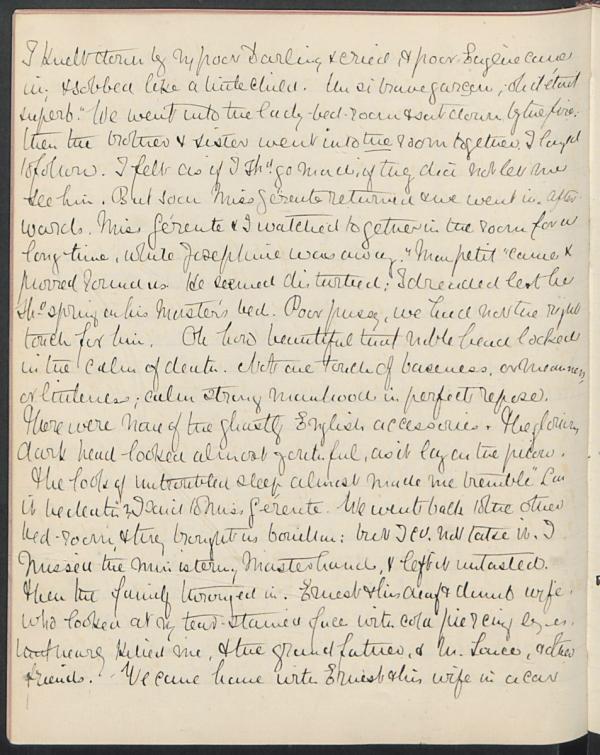 I knelt down by my poor Darling & cried, & poor Eugène came
in, & sobbed like a little child. "Un si brave garçon, oh il était
superb." We went into the lady-bed-room & sat down by the fire.
then the brother & sister went into the room together, I longed
to follow. I felt as if I shd go mad, if they did not let me
see him. But soon Miss Gérente returned & we went in. After-
wards. Miss Gérente & I watched together in the room for a
long time, while Josephine was away. "Mon petit" came &
purred round us. He seemed disturbed; I dreaded lest he
shd spring on his Master's bed. Poor pussy, we had not the right
touch for him. Oh how beautiful that noble head looked
in the calm of death. Not one touch of baseness, or meanness
or littleness; calm strong manhood in perfect repose.
There were none of the ghastly English accessories. The glorious
dark head looked almost youthful, as it lay on the pillow.
The look of untroubled sleep almost made me tremble "Can
it be death?" I said to Miss Gérente. We went back to the other
bed-room, & they brought us bouillon: but I cd. not take it. I
missed the ministering Master hand, & left it untasted.
Then the family thronged in. Ernest & his deaf & dumb wife.
who looked at my tear-stained face with cold piercing eyes.
Henry kissed me, & the grandfather, & M. , & other
friends. We came home with Ernest & his wife in a car